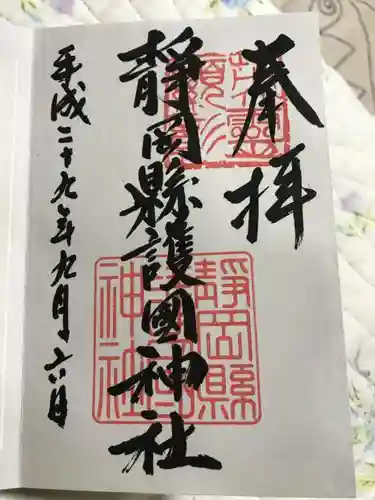 奉拝
靜岡縣護國神社
平成二十九年九月六日
靜岡縣
神社